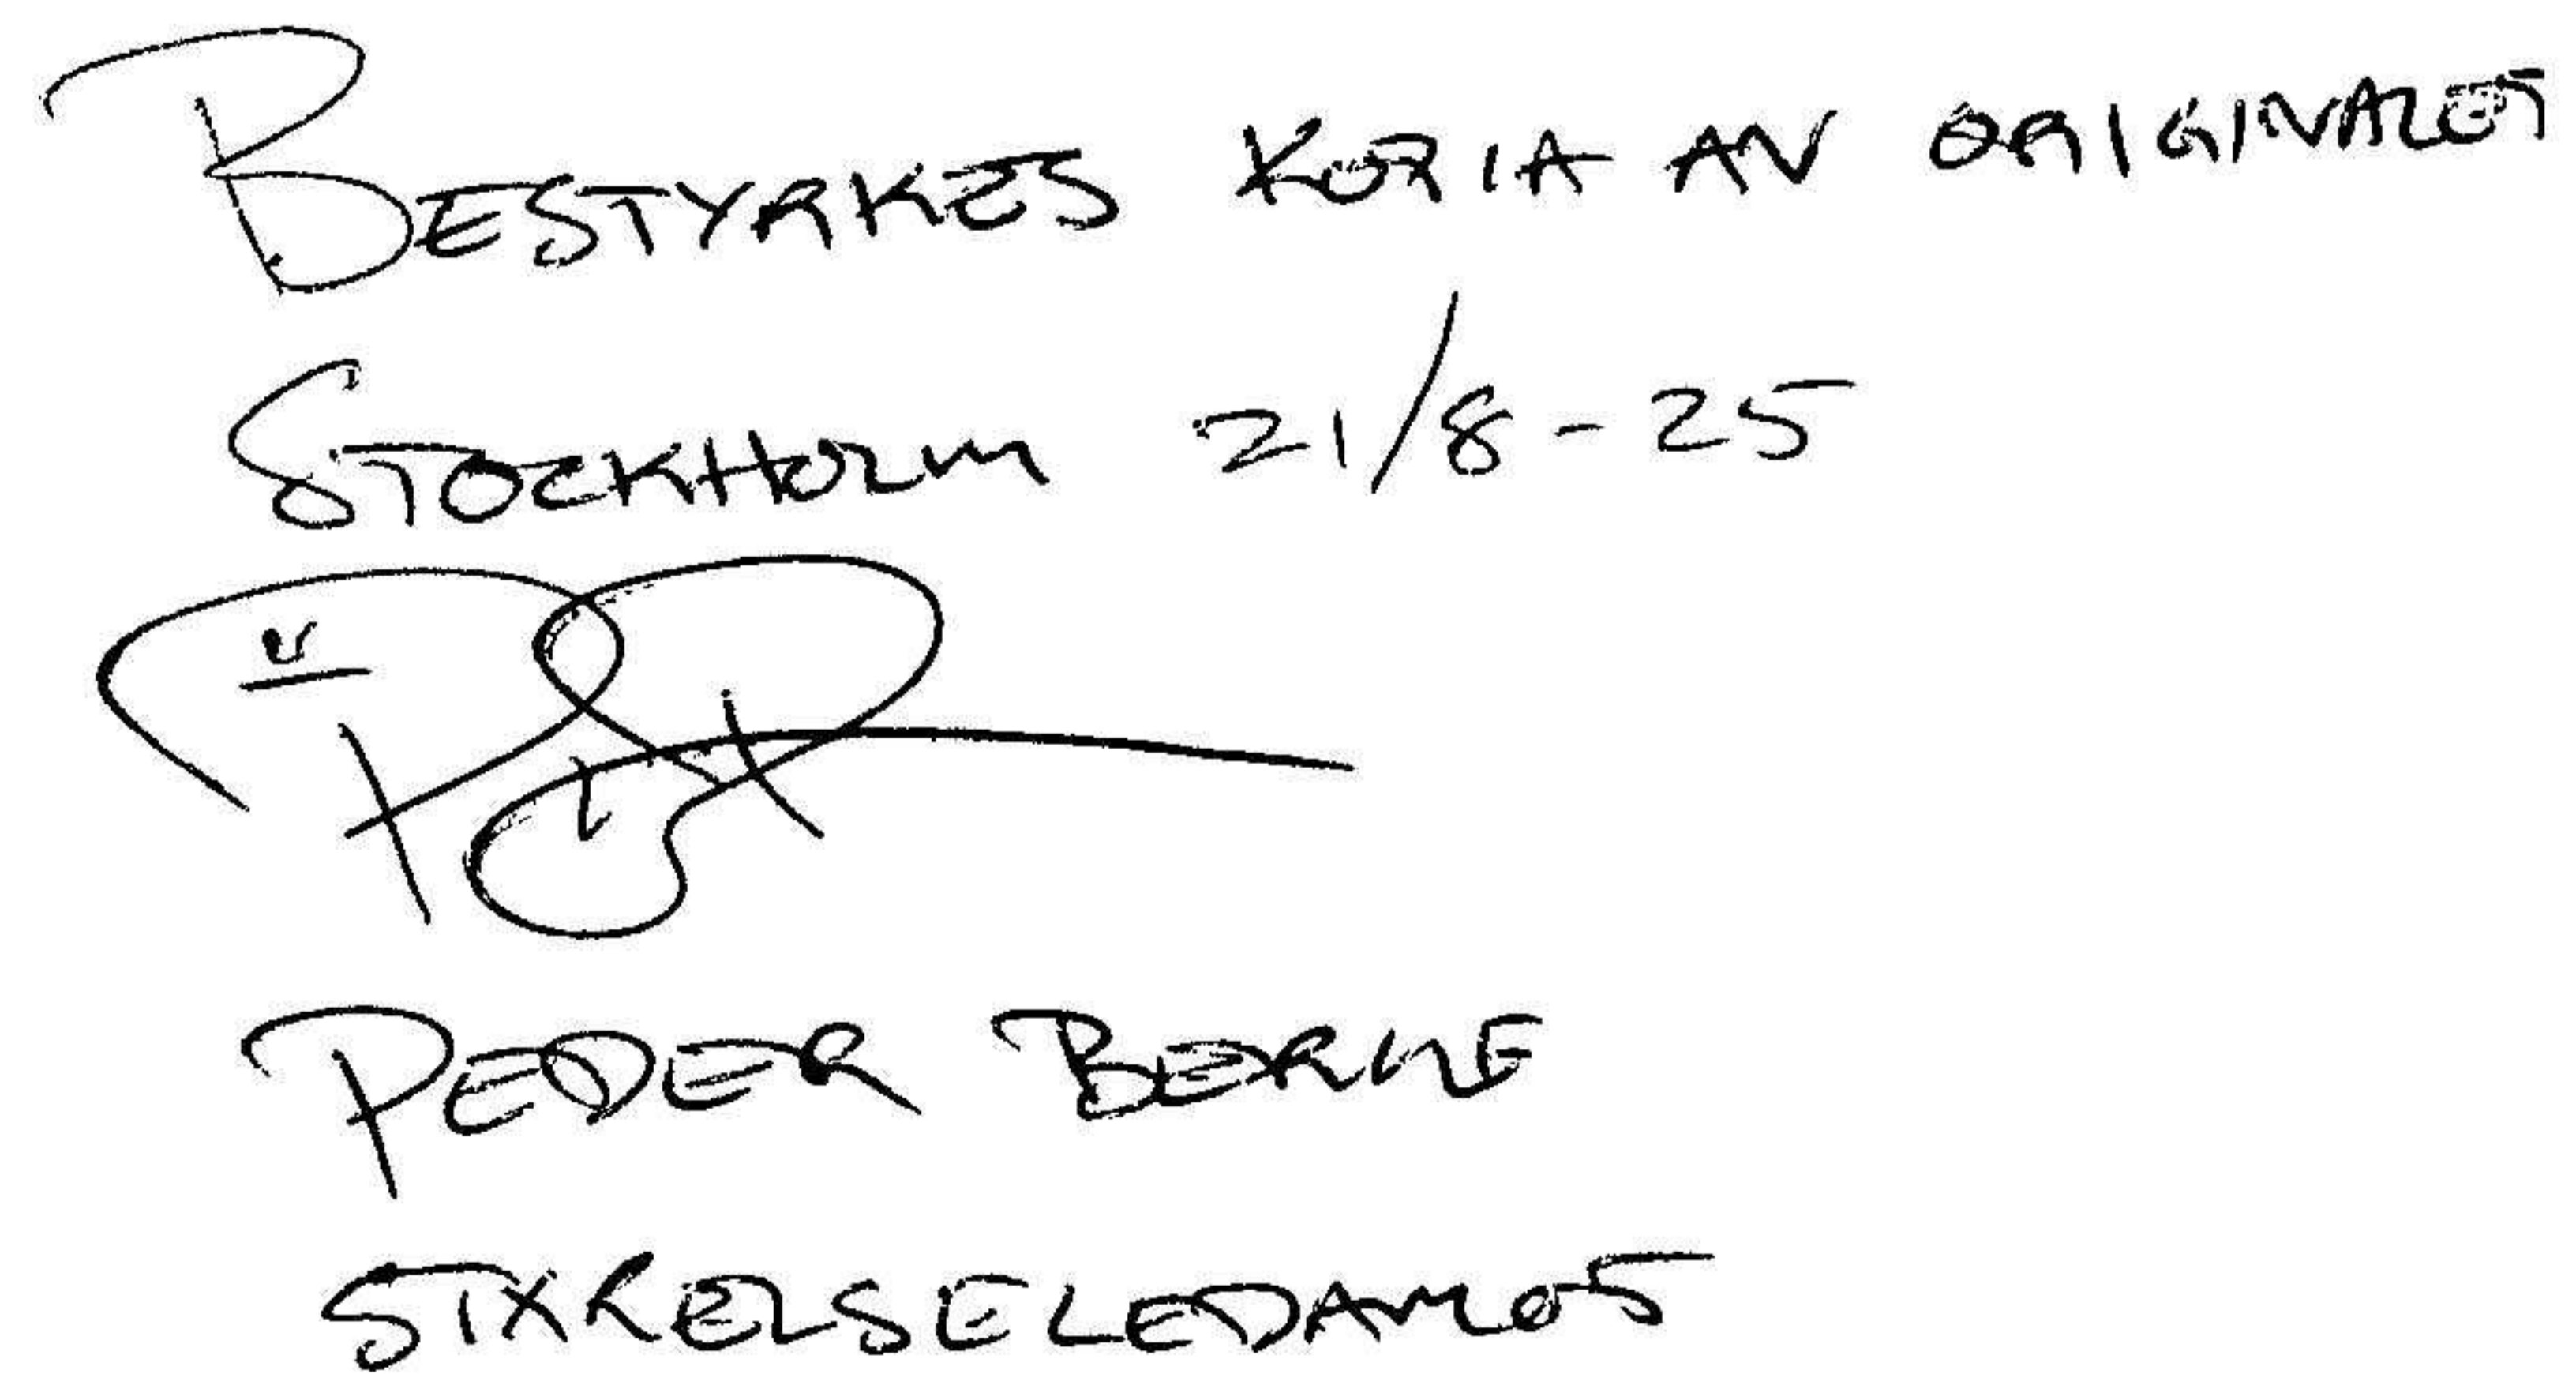 BESTYRKES KOPIA AV ORIGINALET
STOCKHOLM 21/8-25
PEDER BERNE
STYRELSELEDAMOT